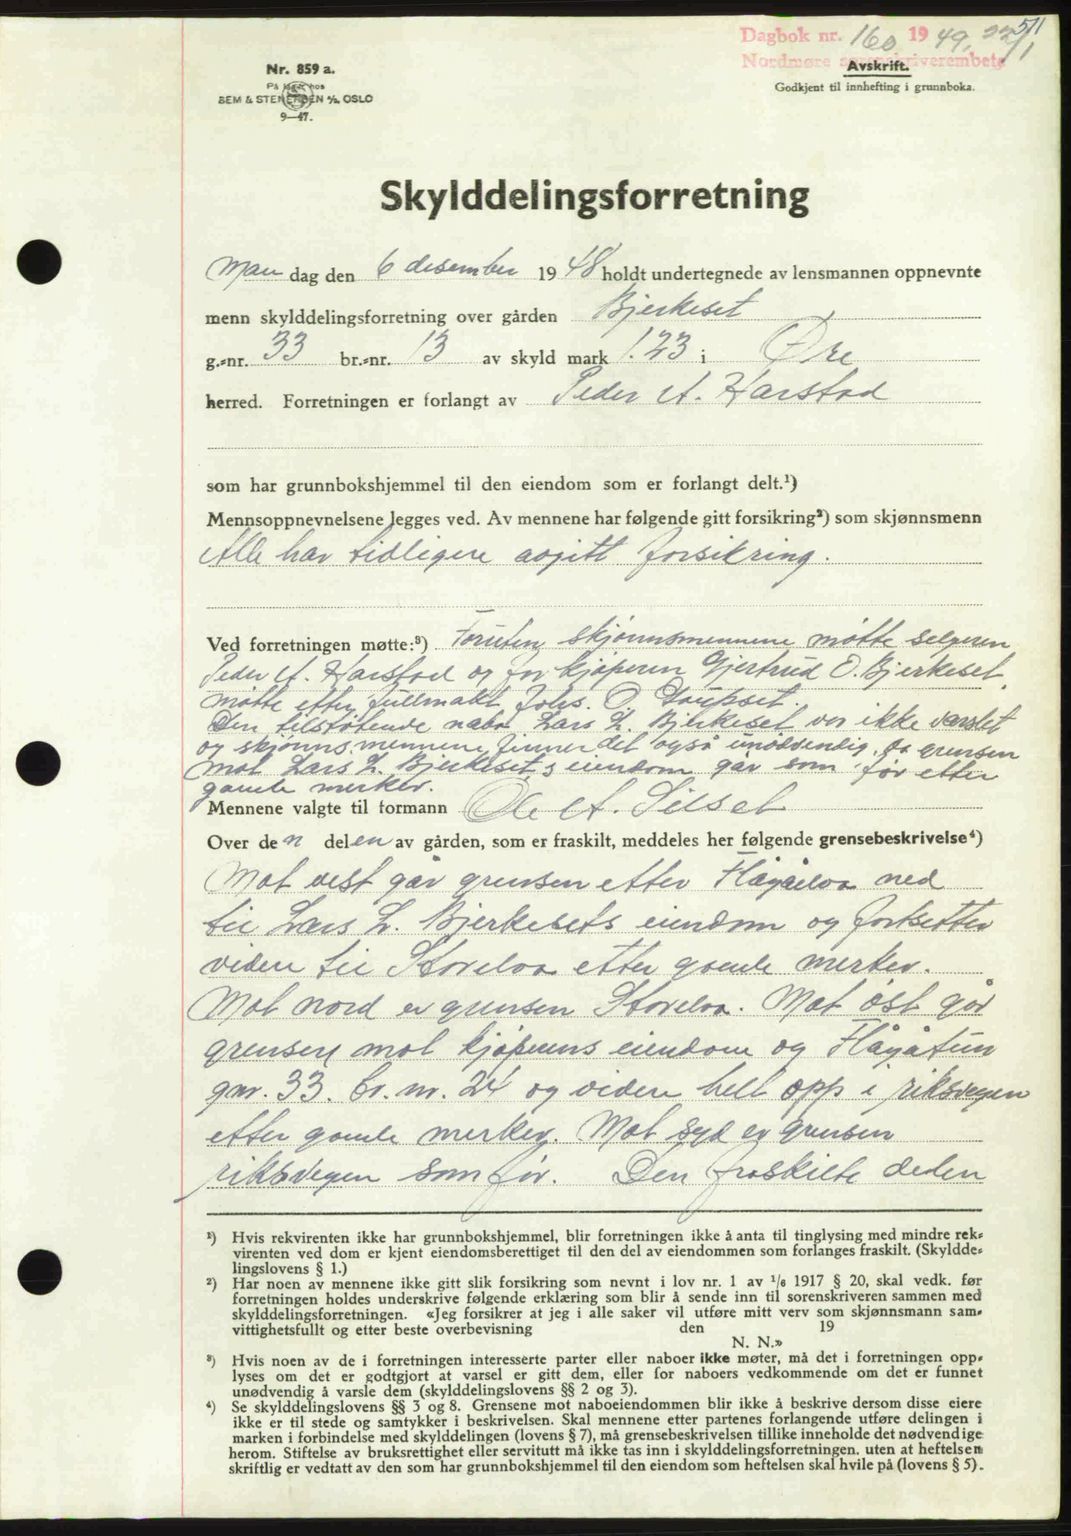 511
Dagbok nr. 160 1949, 22/1
Nordmøre sorenskriverembete
Nr. 859 a.
På lager hos
SEM & STENERSEN A/S, OSLO
9—47.
Avskrift.
Godkjent til innhefting i grunnboka.
Skylddelingsforretning
Man dag den 6 desember 19 48 holdt undertegnede av lensmannen oppnevnte
menn skylddelingsforretning over gården Bjerkeset
g.-nr. 33 br.-nr. 13 av skyld mark 1.23 i Øre
herred. Forretningen er forlangt av Peder A. Harstad
som har grunnbokshjemmel til den eiendom som er forlangt delt.¹)
Mennsoppnevnelsene legges ved. Av mennene har følgende gitt forsikring²) som skjønnsmenn
Alle har tidligere avgitt forsikring.
Ved forretningen møtte:³) Foruten skjønnsmennene møtte selgeren
Peder A. Harstad og for kjøperen Gjertrud O. Bjerkeset
møtte etter fullmakt Johs. O.
Den tilstøtende nabo Lars L. Bjerkeset var ikke varslet
og skjønnsmennene finner det også unødvendig, da grensen
mot Lars L. Bjerkeset,s eiendom går som før etter
gamle merker.
Mennene valgte til formann Ole A. Silset
Over den delen av gården, som er fraskilt, meddeles her følgende grensebeskrivelse⁴)
Mot vest går grensen etter Flåyåelva ned
til Lars L. Bjerkesets eiendom og fortsetter
videre til Storelva etter gamle merker.
Mot nord er grensen Storelva. Mot øst går
grensen mot kjøperens eiendom og Flåyåtun
gnr. 33. br. nr. 24 og videre helt opp i riksvegen
etter gamle merker. Mot syd er grensen
riksvegen som før. Den fraskilte delen
¹) Hvis rekvirenten ikke har grunnbokshjemmel, blir forretningen ikke å anta til tinglysing med mindre rek-
virenten ved dom er kjent eiendomsberettiget til den del av eiendommen som forlanges fraskilt. (Skyldde-
lingslovens § 1.)
²) Har noen av mennene ikke gitt slik forsikring som nevnt i lov nr. 1 av ¹/₆ 1917 § 20, skal vedk. før
forretningen holdes underskrive følgende erklæring som blir å sende inn til sorenskriveren sammen med
skylddelingsforretningen. «Jeg forsikrer at jeg i alle saker vil utføre mitt verv som skjønnsmann sam-
vittighetsfullt og etter beste overbevisning den 19
N. N.»
³) Hvis noen av de i forretningen interesserte parter eller naboer ikke møter, må det i forretningen opp-
lyses om det er godtgjort at varsel er gitt dem, eller for naboers vedkommende om det er funnet
unødvendig å varsle dem (skylddelingslovens §§ 2 og 3).
⁴) Se skylddelingslovens §§ 3 og 8. Grensene mot naboeiendommen blir ikke å beskrive dersom disse eiere
ikke er til stede og samtykker i beskrivelsen. Skal mennene etter partenes forlangende utføre delingen i
marken i forbindelse med skylddelingen (lovens § 7), må grensebeskrivelsen tillike inneholde det nødvendige
herom. Stiftelse av bruksrettighet eller servitutt må ikke tas inn i skylddelingsforretningen, uten at heftelsen
skriftlig er vedtatt av den som har grunnbokshjemmel til den eiendom som heftelsen skal hvile på (lovens § 5).